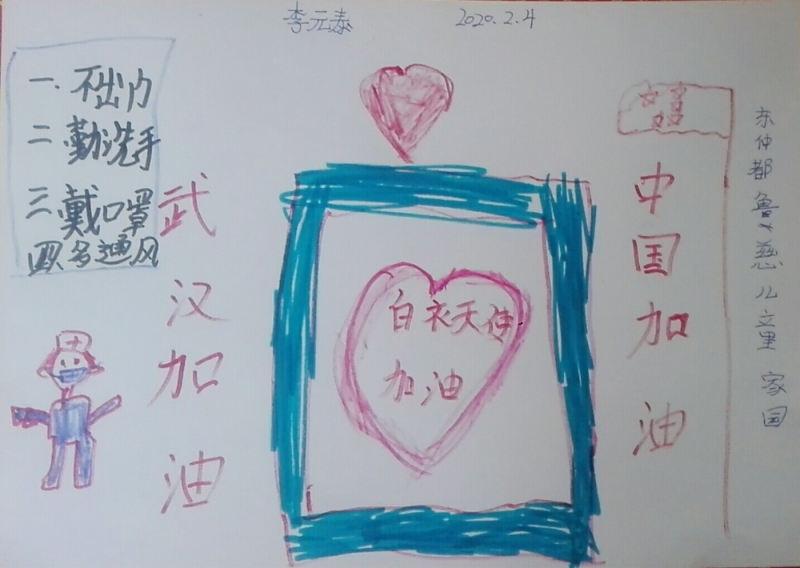 李元泰 2020.2.4
一.不出门
二勤洗手
三戴口罩
四多通风
武汉加油
白衣天使
加油
中国加油
东仲都鲁慈儿童家园